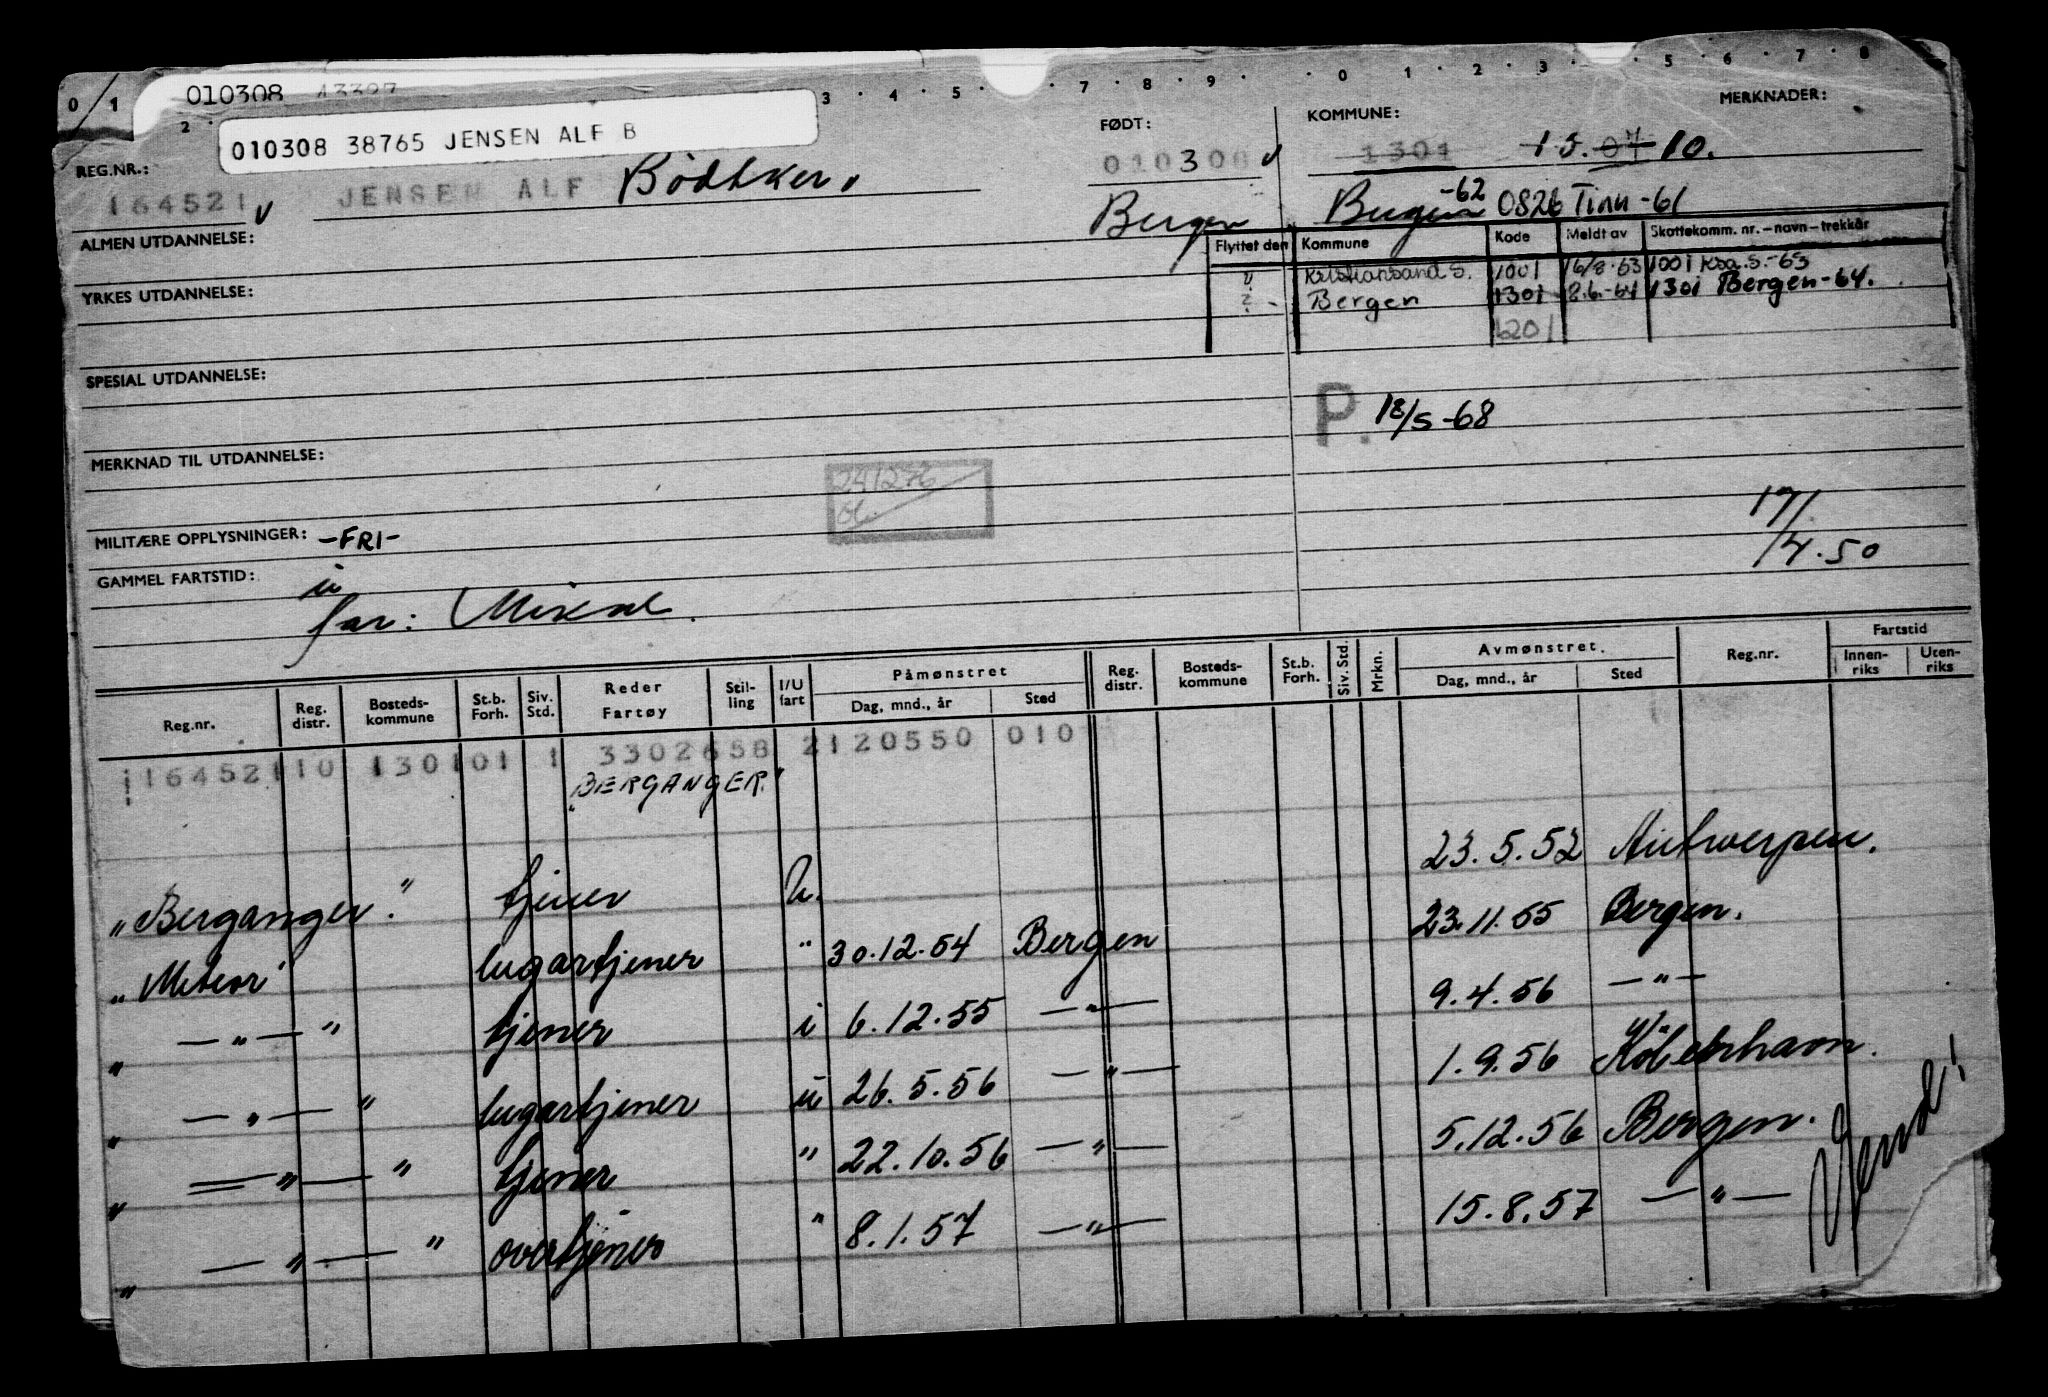 0 1 2 3 4 5 7 8 9 0 1 2 3 5 6 7 8
010308
010308 38765 JENSEN ALF B
REG.NR.: FØDT: KOMMUNE: MERKNADER:
164521 JENSEN ALF Bödtker. 010308 1301 15.07 10.
Bergen Bergen -62 0826 Tinn -61
ALMEN UTDANNELSE:
Flyttet den Kommune Kode Meldt av Skattekomm. nr. – navn – trekkår
? Kristiansand S. 1001 16/8-63 1001 Krsa. S. -63
? - Bergen 1301 8.6.-64 1301 Bergen - 64.
1201
YRKES UTDANNELSE:
SPESIAL UTDANNELSE:
P. 18/5-68
MERKNAD TIL UTDANNELSE:
241276
MILITÆRE OPPLYSNINGER: -FRI-
17/
/4.50
GAMMEL FARTSTID:
u
far: Mikal.
Reg.nr. Reg. distr. Bosteds-kommune St.b. Forh. Siv. Std. Reder Fartøy Stil-ling I/U fart Påmønstret Dag, mnd., år Sted Reg. distr. Bosteds-kommune St.b. Forh. Siv. Std. Mrkn. Avmønstret. Dag, mnd., år Sted Reg.nr. Fartstid Innen-riks Uten-riks
116452110 130101 1 3302658 2120550 010
"BERGANGER"
"Berganger." tjener U. 23.5.52 Antwerpen.
"Meteor" lugartjener " 30.12.54 Bergen 23.11.55 Bergen.
" — " — " tjener i 6.12.55 — " — 9.4.56 — " —
" — " — " lugartjener u 26.5.56 — " — 1.9.56 Köbenhavn.
" — " — " tjener " 22.10.56 — " — 5.12.56 Bergen.
" — " — " overtjener " 8.1.57 — " — 15.8.57 — " —
Vend!